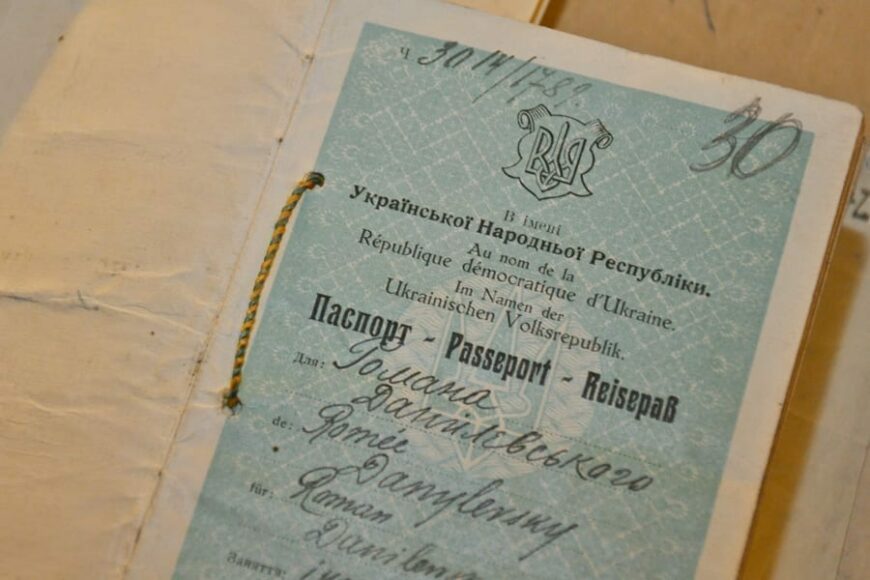 Ч 3014/1789
30
В імені
Української Народньої Республіки.
Au nom de la
République démocratique d'Ukraine.
Im Namen der
Ukrainischen Volksrepublik.
Паспорт - Passeport - Reisepaß
Для: Романа
Данилевського
de: Romée
Danylevsky
für: Roman
Заняття: